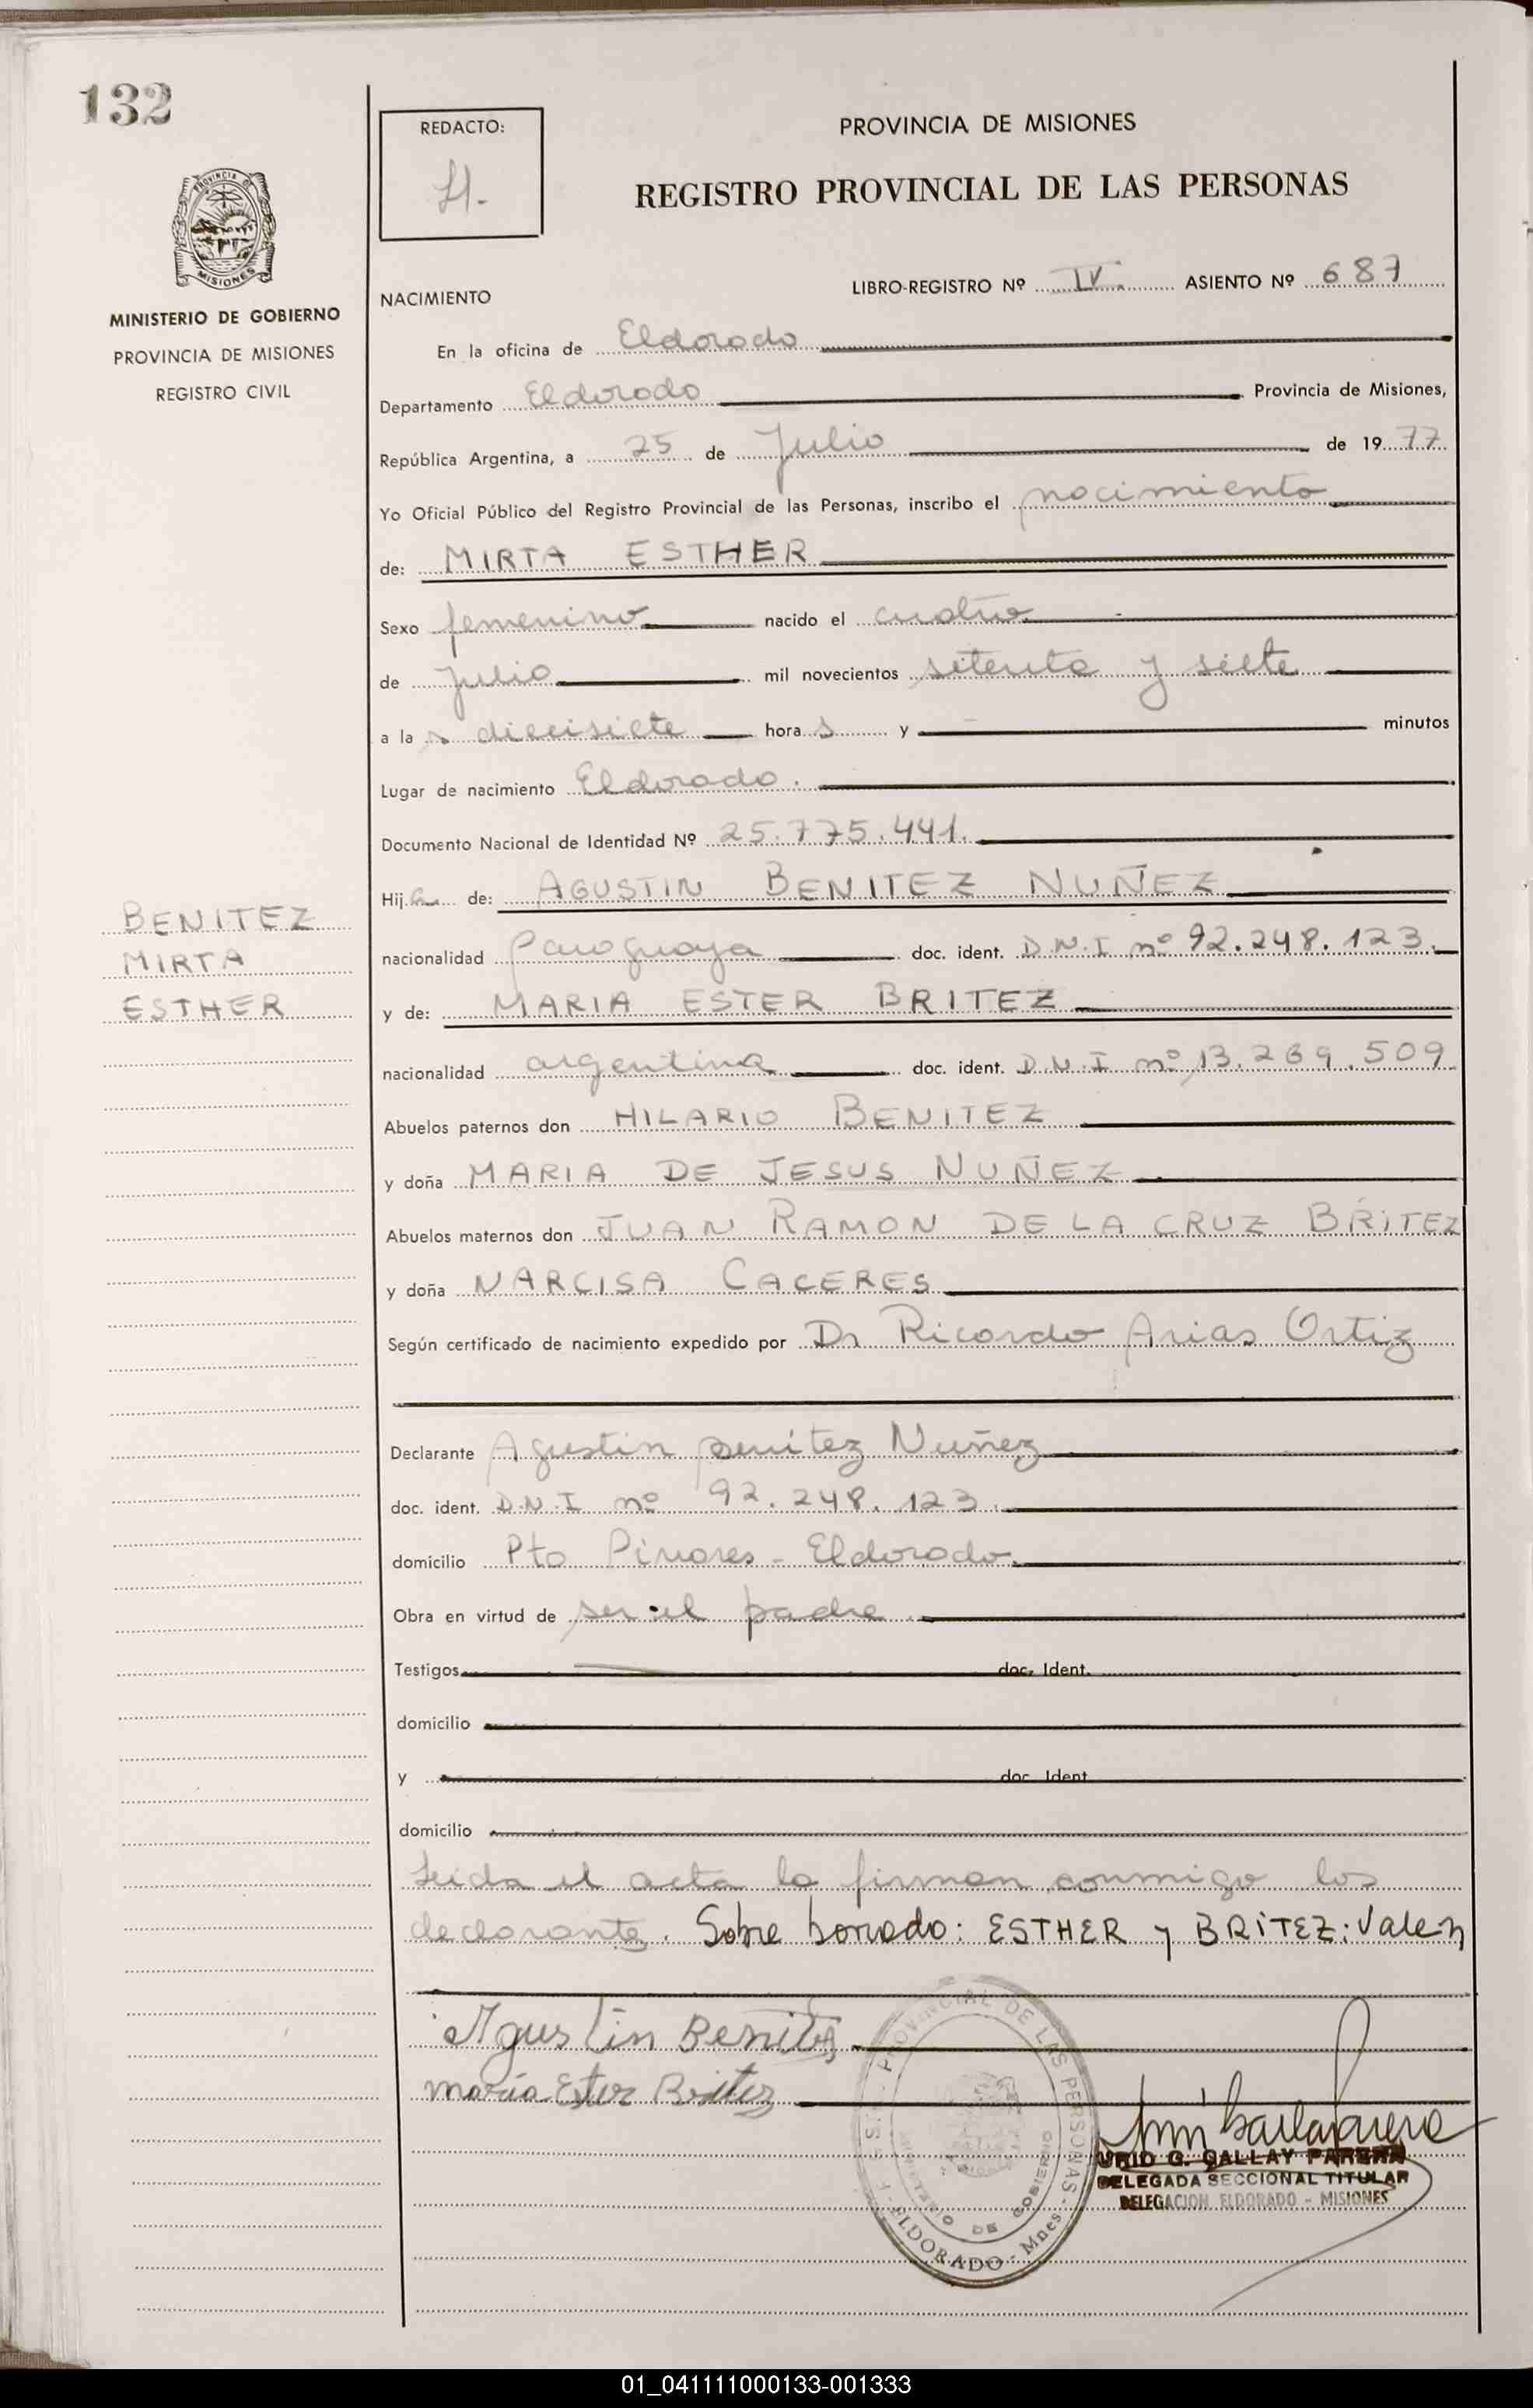 132
REDACTO:
H.
PROVINCIA DE MISIONES
REGISTRO PROVINCIAL DE LAS PERSONAS
PROVINCIA DE
MISIONES
MINISTERIO DE GOBIERNO
PROVINCIA DE MISIONES
REGISTRO CIVIL
LIBRO-REGISTRO Nº IV. ASIENTO Nº 687
NACIMIENTO
En la oficina de Eldorado
Departamento Eldorado Provincia de Misiones,
República Argentina, a 25 de Julio de 1977
Yo Oficial Público del Registro Provincial de las Personas, inscribo el nacimiento
de: MIRTA ESTHER
Sexo femenino nacido el cuatro
de julio mil novecientos setenta y siete
a la s diecisiete hora s y minutos
Lugar de nacimiento Eldorado.
Documento Nacional de Identidad Nº 25.775.441.
Hija de: AGUSTIN BENITEZ NUÑEZ
BENITEZ
MIRTA
ESTHER
nacionalidad paraguaya doc. ident. D.N.I nº 92.248.123.
y de: MARIA ESTER BRITEZ
nacionalidad argentina doc. ident. D.N.I nº 13.269.509
Abuelos paternos don HILARIO BENITEZ
y doña MARIA DE JESUS NUÑEZ
Abuelos maternos don JUAN RAMON DE LA CRUZ BRITEZ
y doña NARCISA CACERES
Según certificado de nacimiento expedido por Dr Ricardo Arias Ortiz
Declarante Agustin Benitez Nuñez
doc. ident. D.N.I nº 92.248.123.
domicilio Pto Pinares - Eldorado.
Obra en virtud de ser el padre.
Testigos doc. Ident.
domicilio
y doc. Ident.
domicilio
Leida el acta la firman conmigo los
declarante. Sobre borrado: ESTHER y BRITEZ: Valen
Agustin Benitez
maria Ester Britez
PROVINCIAL DE LAS PERSONAS
MINISTERIO DE GOBIERNO
ELDORADO - Mnes.
G. GALLAY PARERA
DELEGADA SECCIONAL TITULAR
DELEGACION ELDORADO - MISIONES
01_041111000133-001333